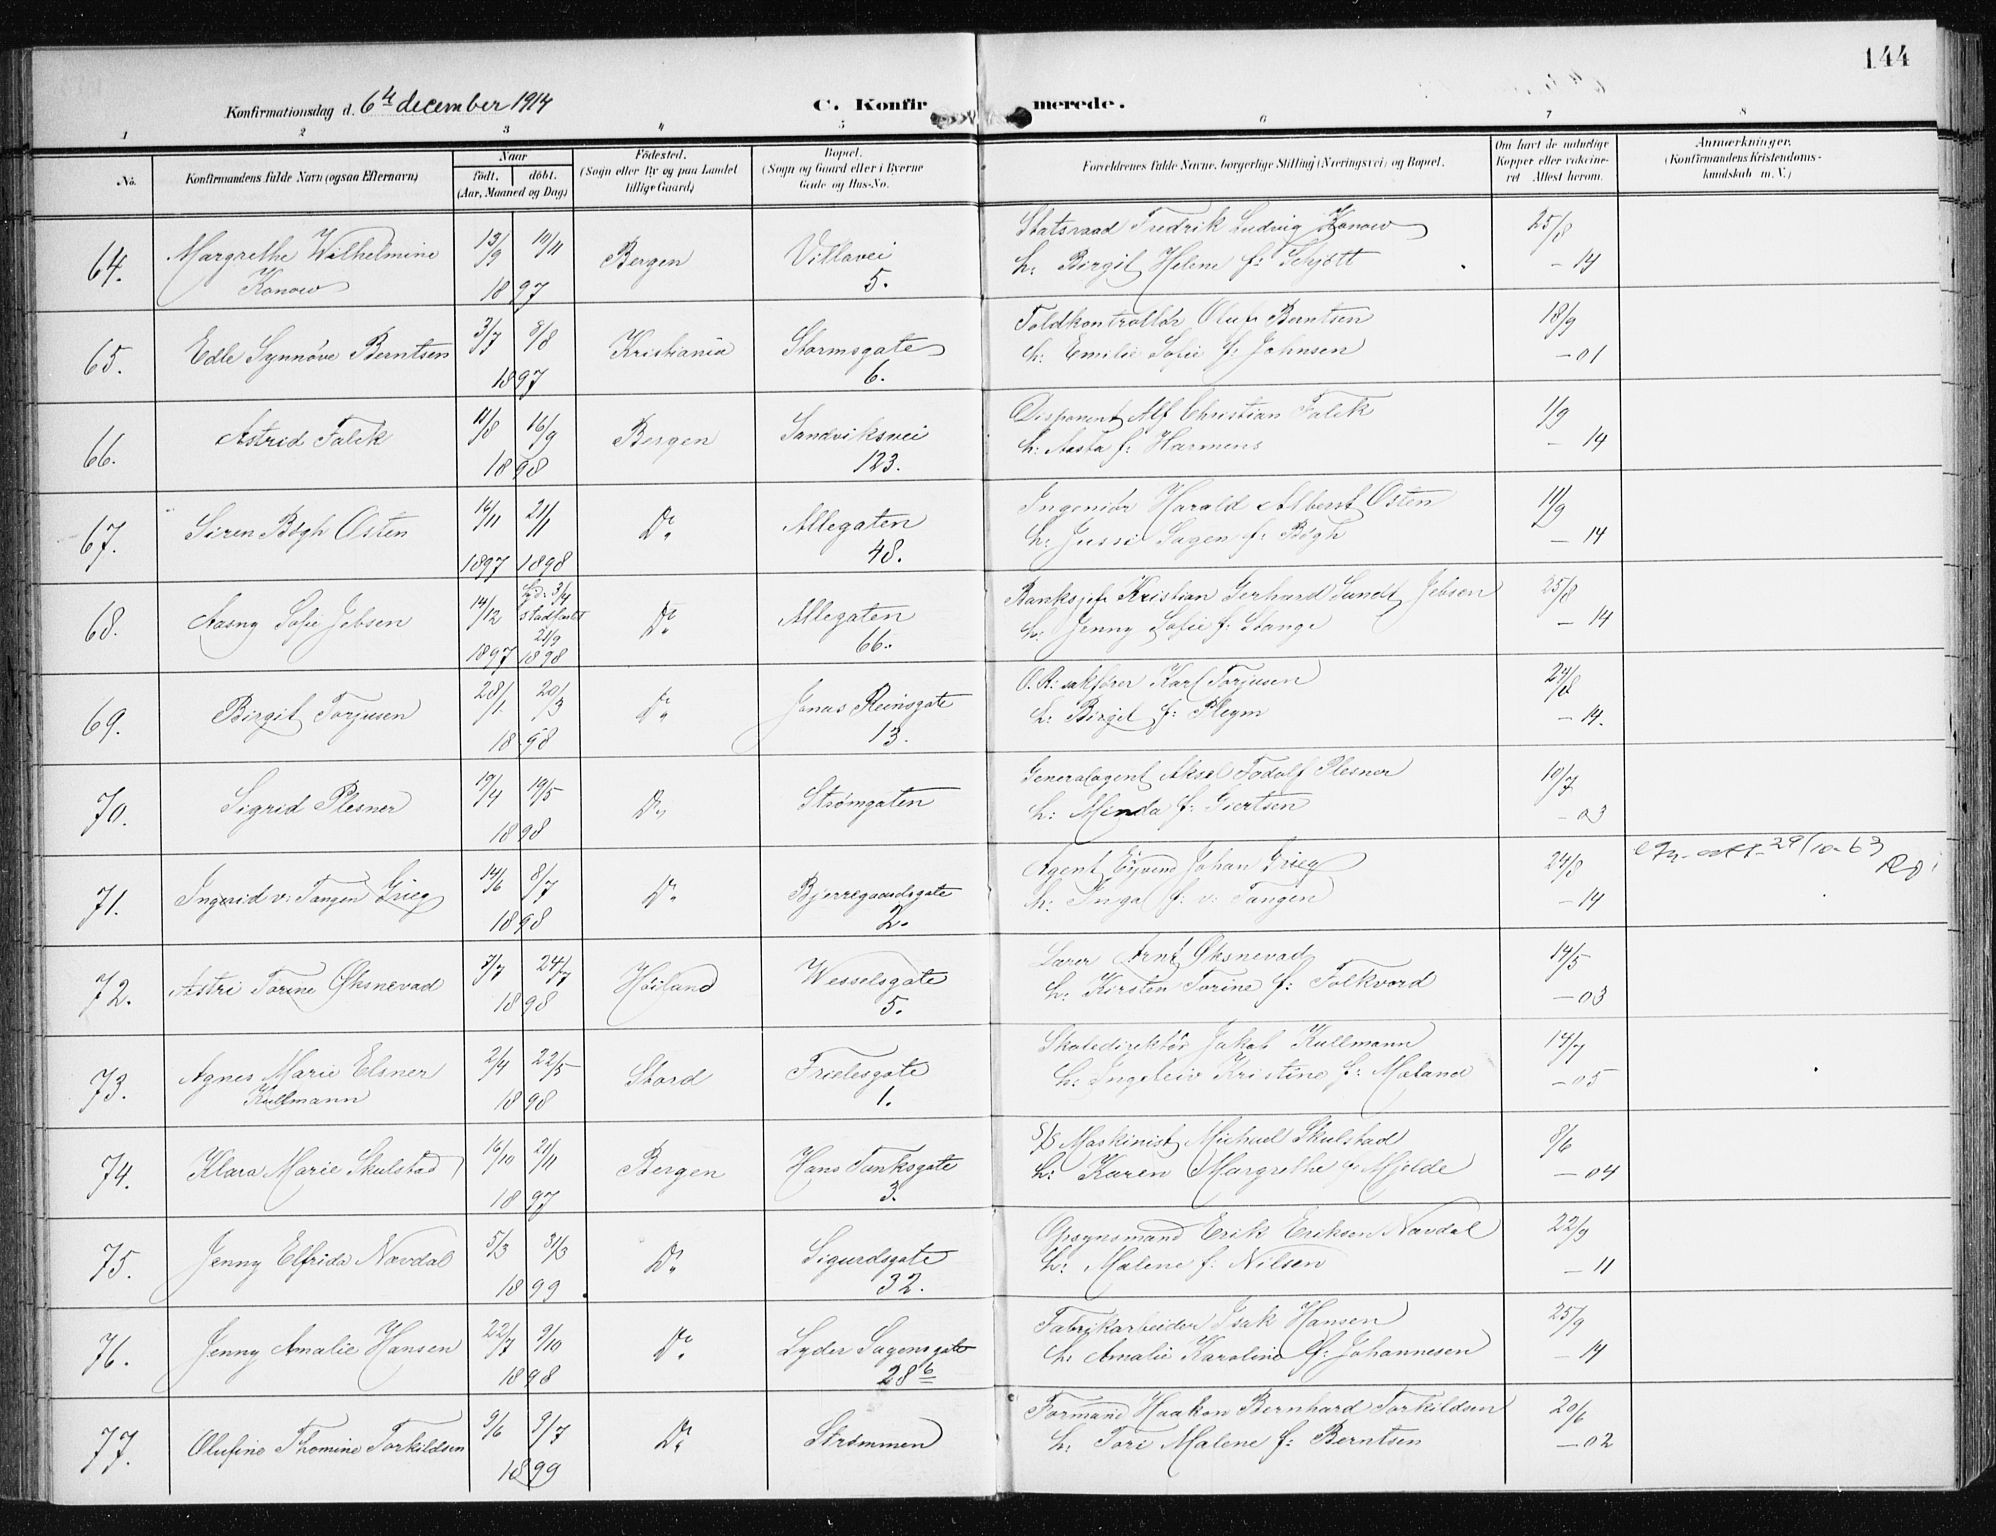 144
Konfirmationsdag d. 6te december 1914
C. Konfirmerede.
1 2 3 4 5 6 7 8
No.
Konfirmandens fulde Navn (ogsaa Efternavn)
Naar
født. døbt.
(Aar, Maaned og Dag)
Fødested.
(Sogn eller By og paa Landet
tillige Gaard)
Bopæl.
(Sogn og Gaard eller i Byerne
Gade og Hus-No.
Forældrenes fulde Navne, borgerlige Stilling (Næringsvei) og Bopæl.
Om havt de naturlige
Kopper eller vakcine-
ret Attest herom.
Anmærkninger.
(Konfirmandens Kristendoms-
kundskab m. V.)
64. Margrethe Wilhelmine 13/9 10/11 Bergen Villavei Statsraad Fredrik Ludvig Konow 25/8
Konow 1897 5. h: Birgit Helene f: Schjøtt - 14
65. Edle Synnøve Berntsen 3/7 8/8 Kristiania Stormsgate Toldkontrollør Oluf Berntsen 18/9
1897 6. h: Emilie Sofie f: Johnsen - 01
66. Astrid Falck 11/8 16/9 Bergen Sandviksvei Disponent Alf Christian Falck 1/9
1898 123. h: Aasta f: Harmens - 14
67. Siren Bøgh Osten 16/11 21/1 Do. Allegaten Ingeniør Harald Albert Osten 11/9
1897 1898 48. h: Jussi Sagen f: Bøgh - 14
68. Aasny Sofie Jebsen 14/12 3/4 Do. Allegaten Banksjef Kristian Gerhard Sundt Jebsen 25/8
stadfæstet 25/9
1897 1898 66. h: Jenny Sofie f: Stange - 14
69. Birgit Torjusen 28/1 20/3 Do. Jonas Reinsgate O.R. sakfører Karl Torjusen 24/8
1898 13. h: Birgit f: Pleym - 14.
70. Sigrid Plesner 19/4 19/5 Do. Strømgaten Generalagent Aksel Plesner 10/7
1898 h: Minda f: Giertsen - 03
71. Ingrid v: Tangen Grieg 14/6 8/7 Do. Bjerregaardsgate Agent Eyvind Johan Grieg 24/8 29/10-63
1898 2. h: Inga f: v: Tangen - 14
72. Astri Torine Øksnevad 7/7 24/7 Høiland Wesselsgate Lærer Arnt Øksnevad 14/5
1898 5. h: Kirsten Torine f: Folkvord - 03
73. Agnes Marie Elsner 2/4 22/5 Stord Frielesgate Skoledirektør Jakob Kullmann 14/7
Kullmann 1898 1. h: Ingeleiv Kristine f: Moland - 05
74. Klara Marie Skulstad 16/10 21/11 Bergen Hans Tanksgate S/S Maskinist Michael Skulstad 8/6
1897 3. h: Karen Margrethe f: Mjelde - 04
75. Jenny Elfrida Navdal 5/3 31/3 Do. Sigurdsgate Opsynsmand Erik Erikson Navdal 22/9
1899 32. h: Malene f: Nilsen - 11
76. Jenny Amalie Hansen 22/7 9/10 Do. Lyder Sagensgate Fabrikarbeider Isak Hansen 25/9
1898 28b h: Amalie Karoline f: Johannesen - 14
77. Olufine Thomine Torkildsen 9/6 9/7 Do. Strømmen Formand Haakon Bernhard Torkildsen 20/6
1899 h: Tori Malene f: Berntsen - 02